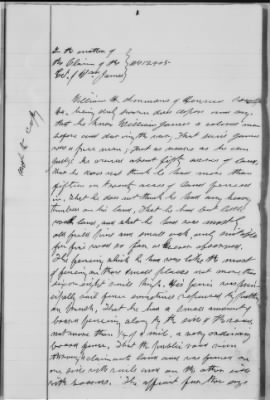 In the matter of
the Claim of the
Est. of Wm. James
William H. Simmons of Henrico
Va, being duly sworn does depose and say,
that he knew William James a colored man
before and during the war, That said James
was a free man, That as nearly as he can
judge he owned about fifty acres of land,
that he does not think he had more than
fifteen or twenty acres of land
in, That he does not think he had any heavy
timber on his land, that he had but little
land, and that he had most of
old field pine and small oak, only suitable
for fire wood so far as he ever observed.
The fencing which he had was like the most
of fencing on those small places not more than
six or eight rails high. His fence was
rail fence sometimes
a small quantity
board fencing along by the side of the road
not more than 1/4 of a mile, a very ordinary
board fence, That the public road ran
through claimants land and was fenced on
one side with rails and on the other side
with boards. The affiant further says